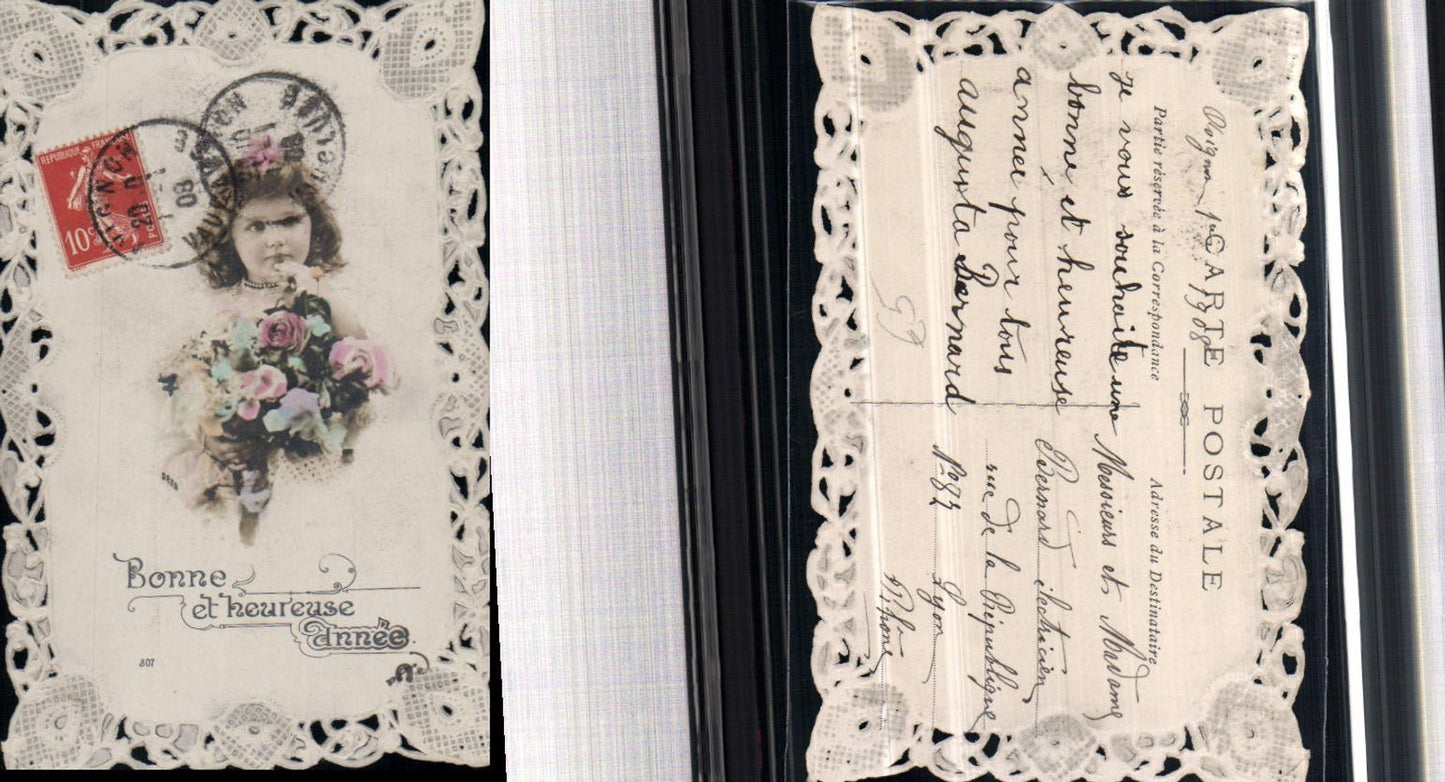 REPUBLIQUE FRANÇAISE
10c
POSTES
AVIGNON
20
3 - 1
08
VAUCLUSE
Bonne
et heureuse
année
807
CARTE POSTALE
Partie réservée à la Correspondance
Adresse du Destinataire
Avignon 1er
1908
je vous souhaite une
bonne et heureuse
année pour tous
augusta Bernard
Messieurs et Madame
Bernard électricien
rue de la République
No 82
Lyon
Rhône